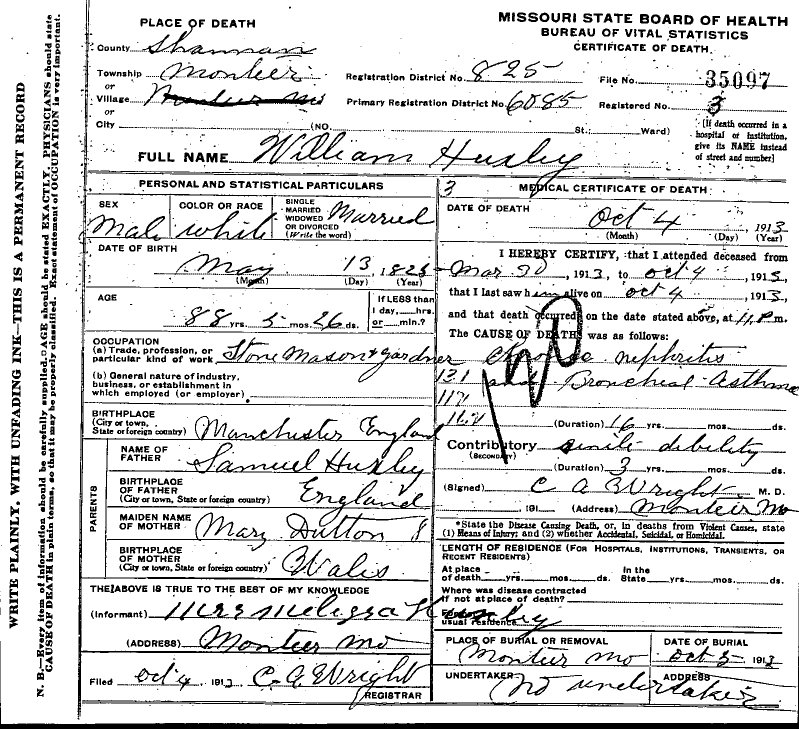 MISSOURI STATE BOARD OF HEALTH
BUREAU OF VITAL STATISTICS
CERTIFICATE OF DEATH
PLACE OF DEATH
County Shannan
Township Monteer
or
Village Monteer Mo
or
City (NO. St.; Ward)
Registration District No. 825 File No. 35097
Primary Registration District No. 6085 Registered No. 3
[If death occurred in a
hospital or institution,
give its NAME instead
of street and number]
FULL NAME William Huxley
PERSONAL AND STATISTICAL PARTICULARS
SEX Male
COLOR OR RACE white
SINGLE
MARRIED
WIDOWED
OR DIVORCED
(Write the word)
Married
DATE OF BIRTH
May 13, 1825
(Month) (Day) (Year)
AGE
88 yrs. 5 mos. 26 ds.
If LESS than
1 day, hrs.
or min.?
OCCUPATION
(a) Trade, profession, or
particular kind of work Stone Mason & gardner
(b) General nature of industry,
business, or establishment in
which employed (or employer)
BIRTHPLACE
(City or town,
State or foreign country) Manchester England
PARENTS
NAME OF
FATHER Samuel Huxley
BIRTHPLACE
OF FATHER
(City or town, State or foreign country) England
MAIDEN NAME
OF MOTHER Mary Dutton
BIRTHPLACE
OF MOTHER
(City or town, State or foreign country) Wales
THE ABOVE IS TRUE TO THE BEST OF MY KNOWLEDGE
(Informant) Mrs Huxley
(ADDRESS) Monteer Mo
Filed oct 4 1913 C. A. Wright
REGISTRAR
3 MEDICAL CERTIFICATE OF DEATH
DATE OF DEATH
Oct 4, 1913
(Month) (Day) (Year)
I HEREBY CERTIFY, that I attended deceased from
Mar 30, 1913, to oct 4, 1913,
that I last saw him alive on oct 4, 1913,
and that death occurred, on the date stated above, at 11 P m.
The CAUSE OF DEATH was as follows:
Chronic nephritis
131 and Bronchial Asthma
120
(Duration) 16 yrs. mos. ds.
Contributory senile debility
(SECONDARY)
(Duration) 3 yrs. mos. ds.
(Signed) C A Wright M. D.
191 (Address) Monteer Mo
*State the Disease Causing Death, or, in deaths from Violent Causes, state
(1) Means of Injury; and (2) whether Accidental, Suicidal, or Homicidal.
LENGTH OF RESIDENCE (FOR HOSPITALS, INSTITUTIONS, TRANSIENTS, OR
RECENT RESIDENTS)
At place of death yrs. mos. ds. In the State yrs. mos. ds.
Where was disease contracted
if not at place of death?
Former or
usual residence
PLACE OF BURIAL OR REMOVAL
Monteer Mo
DATE OF BURIAL
oct 5 1913
UNDERTAKER
No undertaker
ADDRESS
WRITE PLAINLY, WITH UNFADING INK—THIS IS A PERMANENT RECORD
N. B.—Every item of information should be carefully supplied. AGE should be stated EXACTLY. PHYSICIANS should state
CAUSE OF DEATH in plain terms, so that it may be properly classified. Exact statement of OCCUPATION is very important.